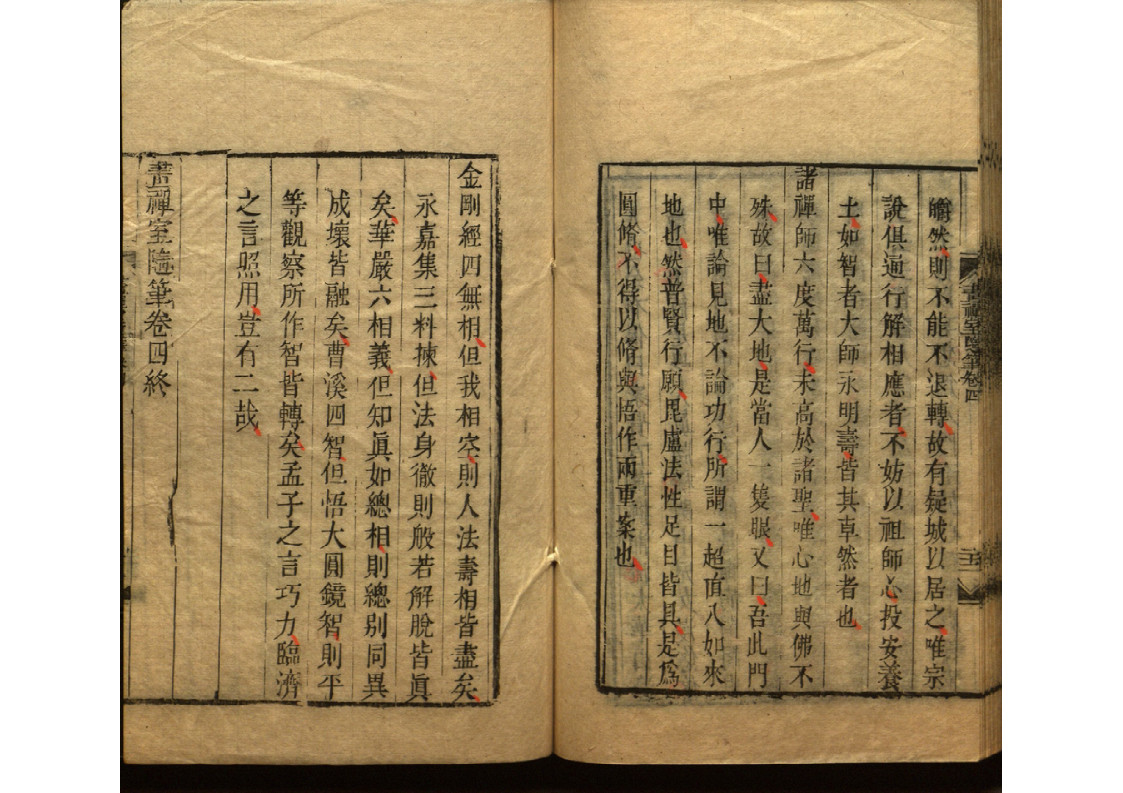 皭然則不能不退轉故有疑城以居之唯宗
說俱通行解相應者不妨以祖師心投安養
土如智者大師永明壽皆其卓然者也
諸禪師六度萬行未高於諸聖唯心地與佛不
殊故曰盡大地是當人一隻眼又曰吾此門
中唯論見地不論功行所謂一超直入如來
地也然普賢行願毘盧法性足目皆具是爲
圓脩不得以脩與悟作兩重案也
金剛經四無相但我相空則人法壽相皆盡矣
永嘉集三料揀但法身徹則般若解脫皆眞
矣華嚴六相義但知眞如總相則總別同異
成壞皆融矣曹溪四智但悟大圓鏡智則平
等觀察所作智皆轉矣孟子之言巧力臨濟
之言照用豈有二哉
畫禪室隨筆卷四終